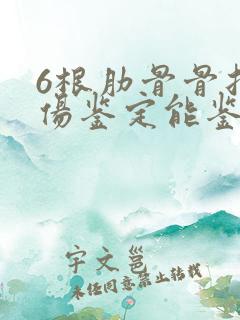 6根肋骨骨折
傷鉴定能鉴
宇文邕
未经同意禁止转载